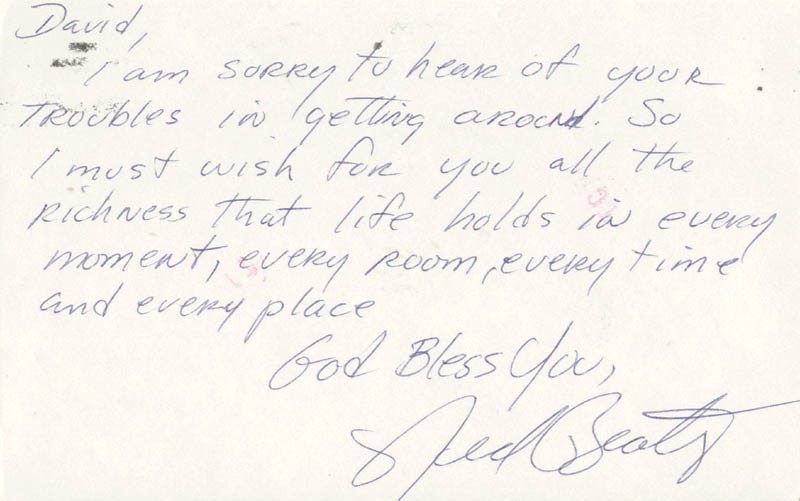 David,
I am sorry to hear of your
troubles in getting around. So
I must wish for you all the
richness that life holds in every
moment, every room, every time
and every place
God Bless You,
Ned Beatty